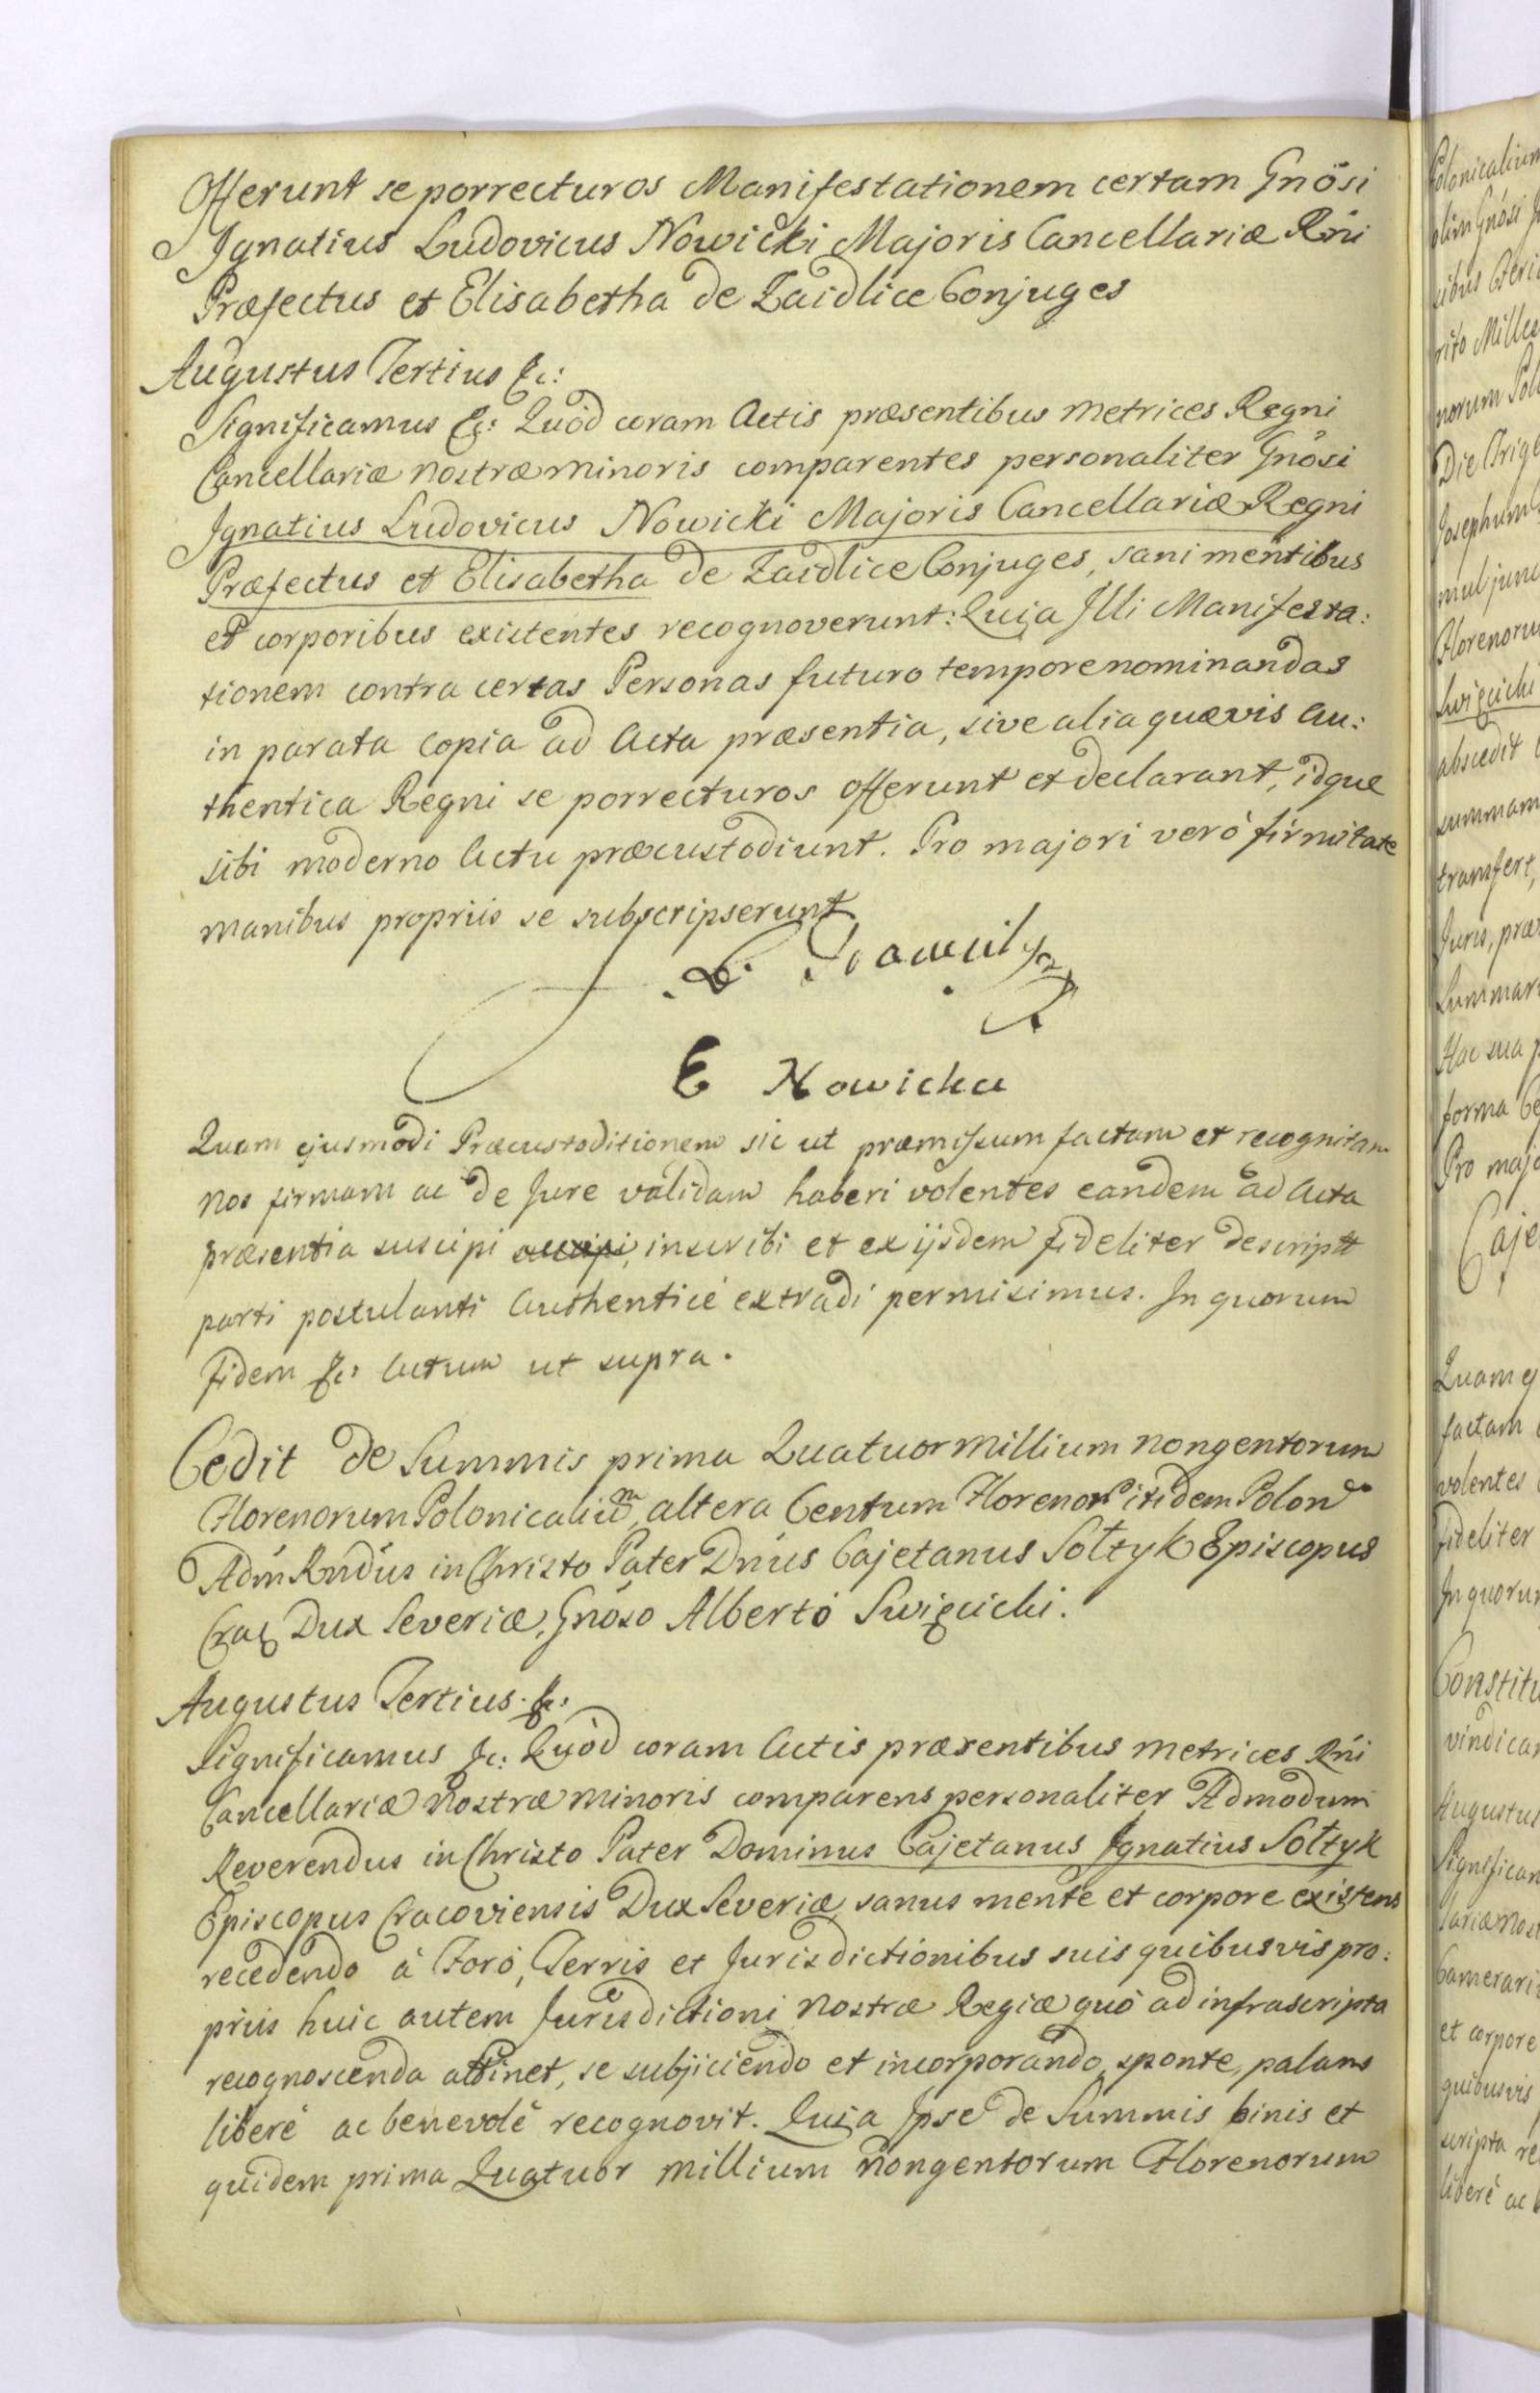 Offerunt se porrecturos Manifestationem certam Gnosi
Ignatius Ludovicus Nowicki Majoris Cancellariæ Rni
Præfectus et Elisabetha de Zaidlice Conjuges
Augustus Tertius &c:
Significamus &c: Quòd coram Actis præsentibus metrices Regni
Cancellariæ nostræ minoris comparentes personaliter Gnosi
Ignatius Ludovicus Nowicki Majoris Cancellariæ Regni
Præfectus et Elisabetha de Zaidlice Conjuges, sani mentibus
et corporibus existentes recognoverunt: Quia Illi Manifesta:
tionem contra certas Personas futuro tempore nominandas
in parata copia ad Acta præsentia, sive alia quævis Au:
thentica Regni se porrecturos offerunt et declarant, idque
sibi moderno Actu præcustodiunt. Pro majori verò firmitate
manibus propriis se subscripserunt
E Nowicka
Quam ejusmodi Præcustoditionem sic ut præmissum factam et recognitam
Nos firmam ac de Jure validam haberi volentes eandem ad Acta
præsentia suscipi accipi, inscribi et ex ijsdem fideliter descript
parti postulanti Authenticè extradi permisimus. In quorum
fidem &c: Actum ut supra.
Cedit de Summis prima Quatuor millium nongentorum
Florenorum Polonicaliū, altera Centum Florenor itidem Polon
Adm Rndus in Christo Pater Dnus Cajetanus Sołtyk Episcopus
Crac Dux Severiæ, Gnoso Alberto Swięcicki.
Augustus Tertius. &c:
Significamus &c: Quòd coram Actis præsentibus metrices Rni
Cancellariæ Nostræ minoris comparens personaliter Admodum
Reverendus in Christo Pater Dominus Cajetanus Ignatius Sołtyk
Episcopus Cracoviensis Dux Severiæ, sanus mente et corpore existens
recedendo à Foro, Terris et Jurisdictionibus suis quibusvis pro:
priis huic autem Jurisdictioni Nostræ Regiæ quò ad infrascripta
recognoscenda attinet, se subjiciendo et incorporando, sponte, palam
liberè ac benevolè recognovit. Quia Ipse de Summis binis et
quidem prima Quatuor millium Nongentorum Florenorum